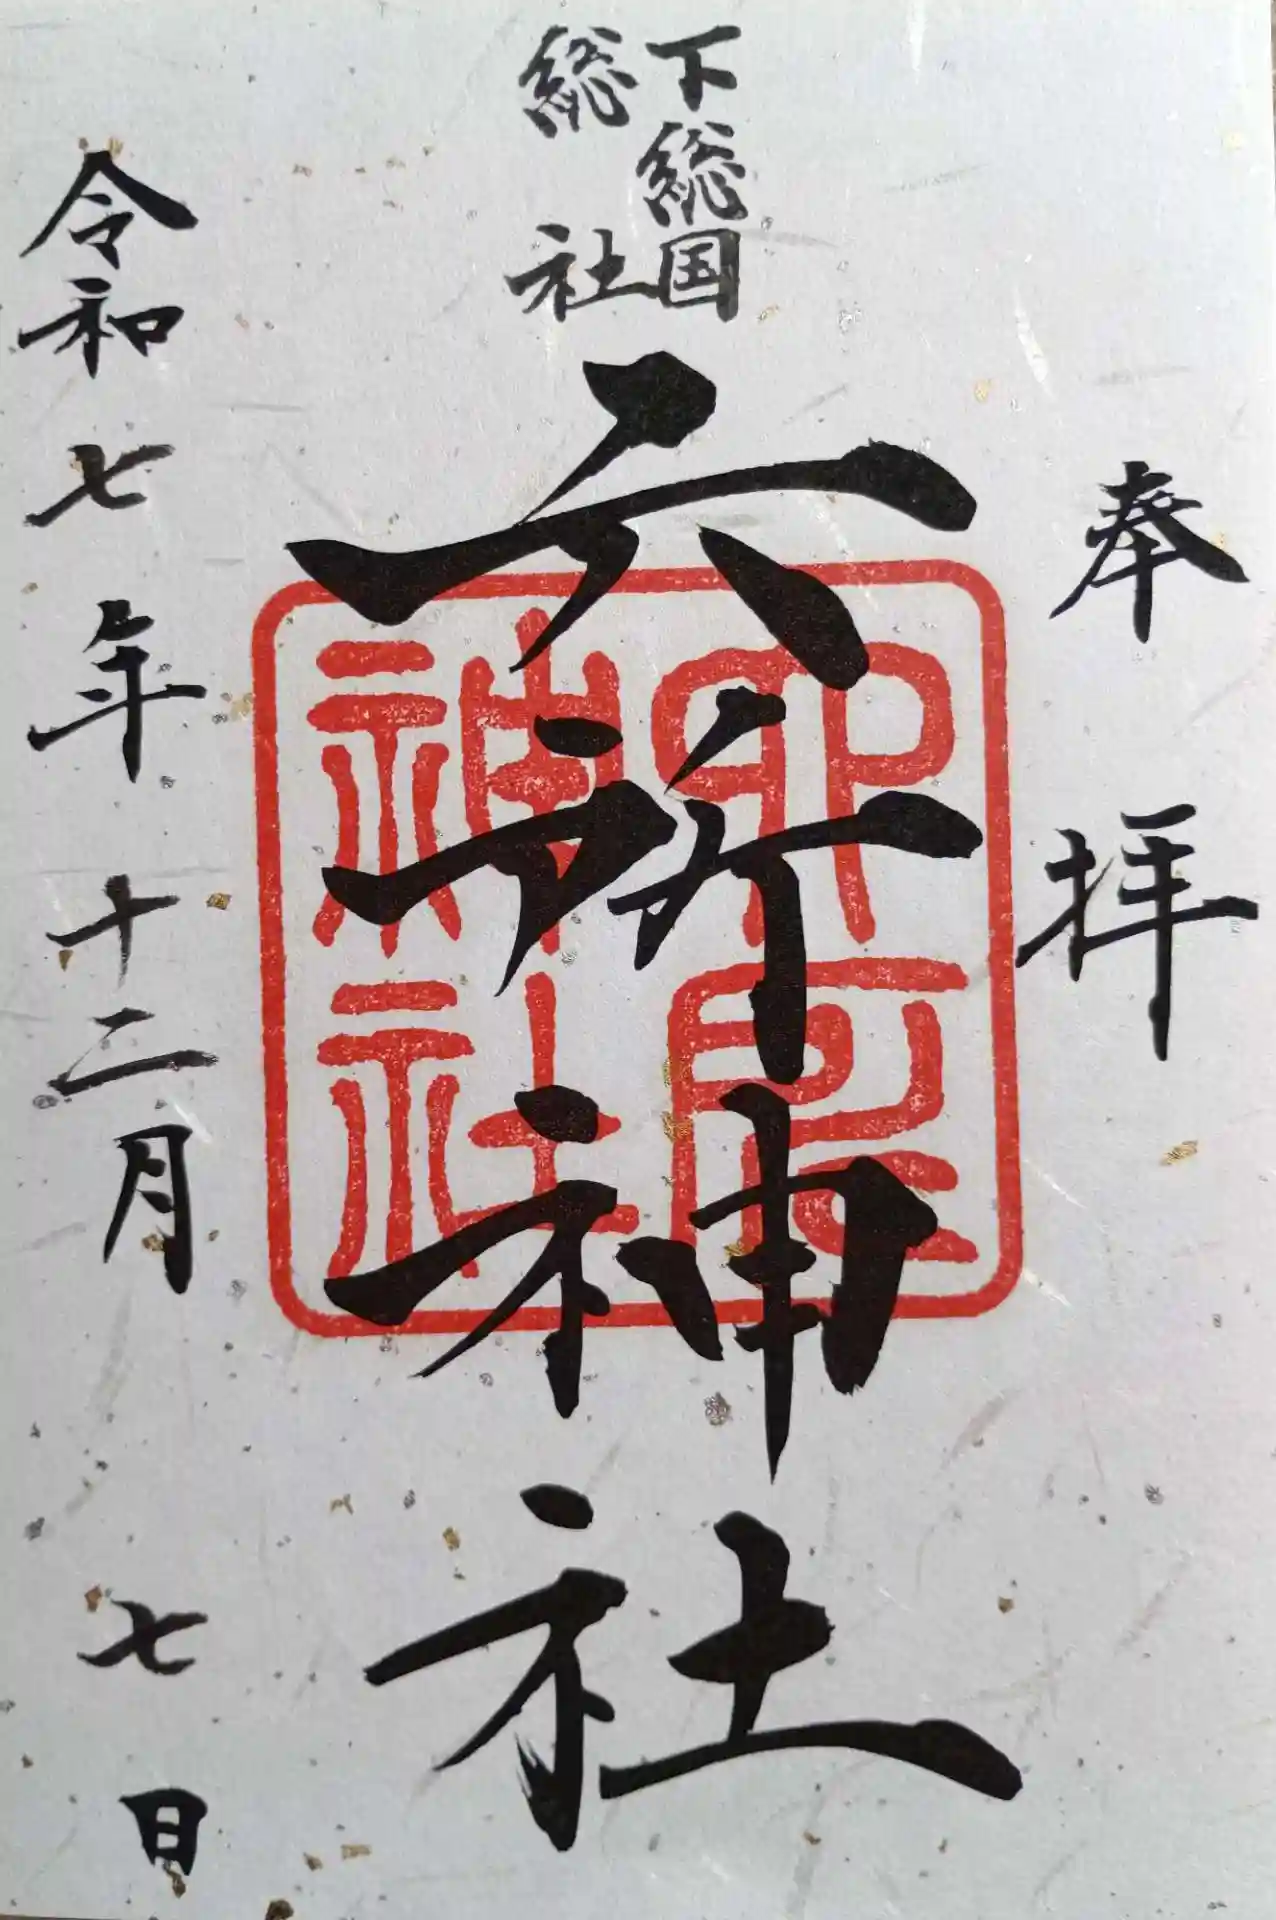 奉拝
下総国
総社
六所神社
六所神社
令和七年十二月七日